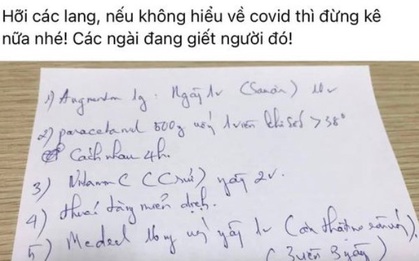 Hỡi các lang, nếu không hiểu về covid thì đừng kê
nữa nhé! Các ngài đang giết người đó!
1) Augmentin 1g: Ngày 1v (Sandoz) 10v
2) paracetamol 500g uống 1 viên khi sốt > 38°
Cách nhau 4h.
3) Vitamin C (Củi) ngày 2v.
4) thuốc tăng miễn dịch.
5) Medrol 16mg uố ngày 1v (
( 3 viên 3 ngày)